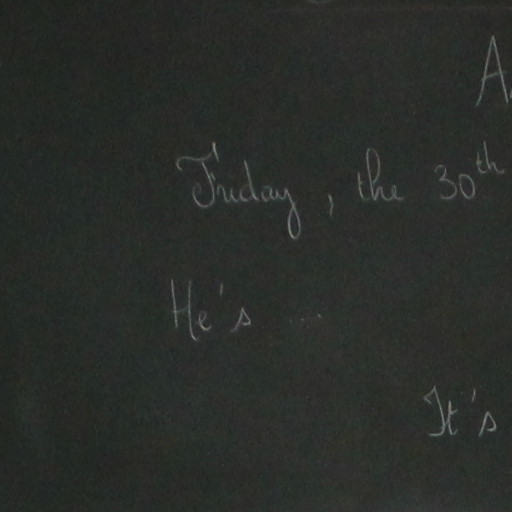 A
Friday, the 30th
He's ...
It's